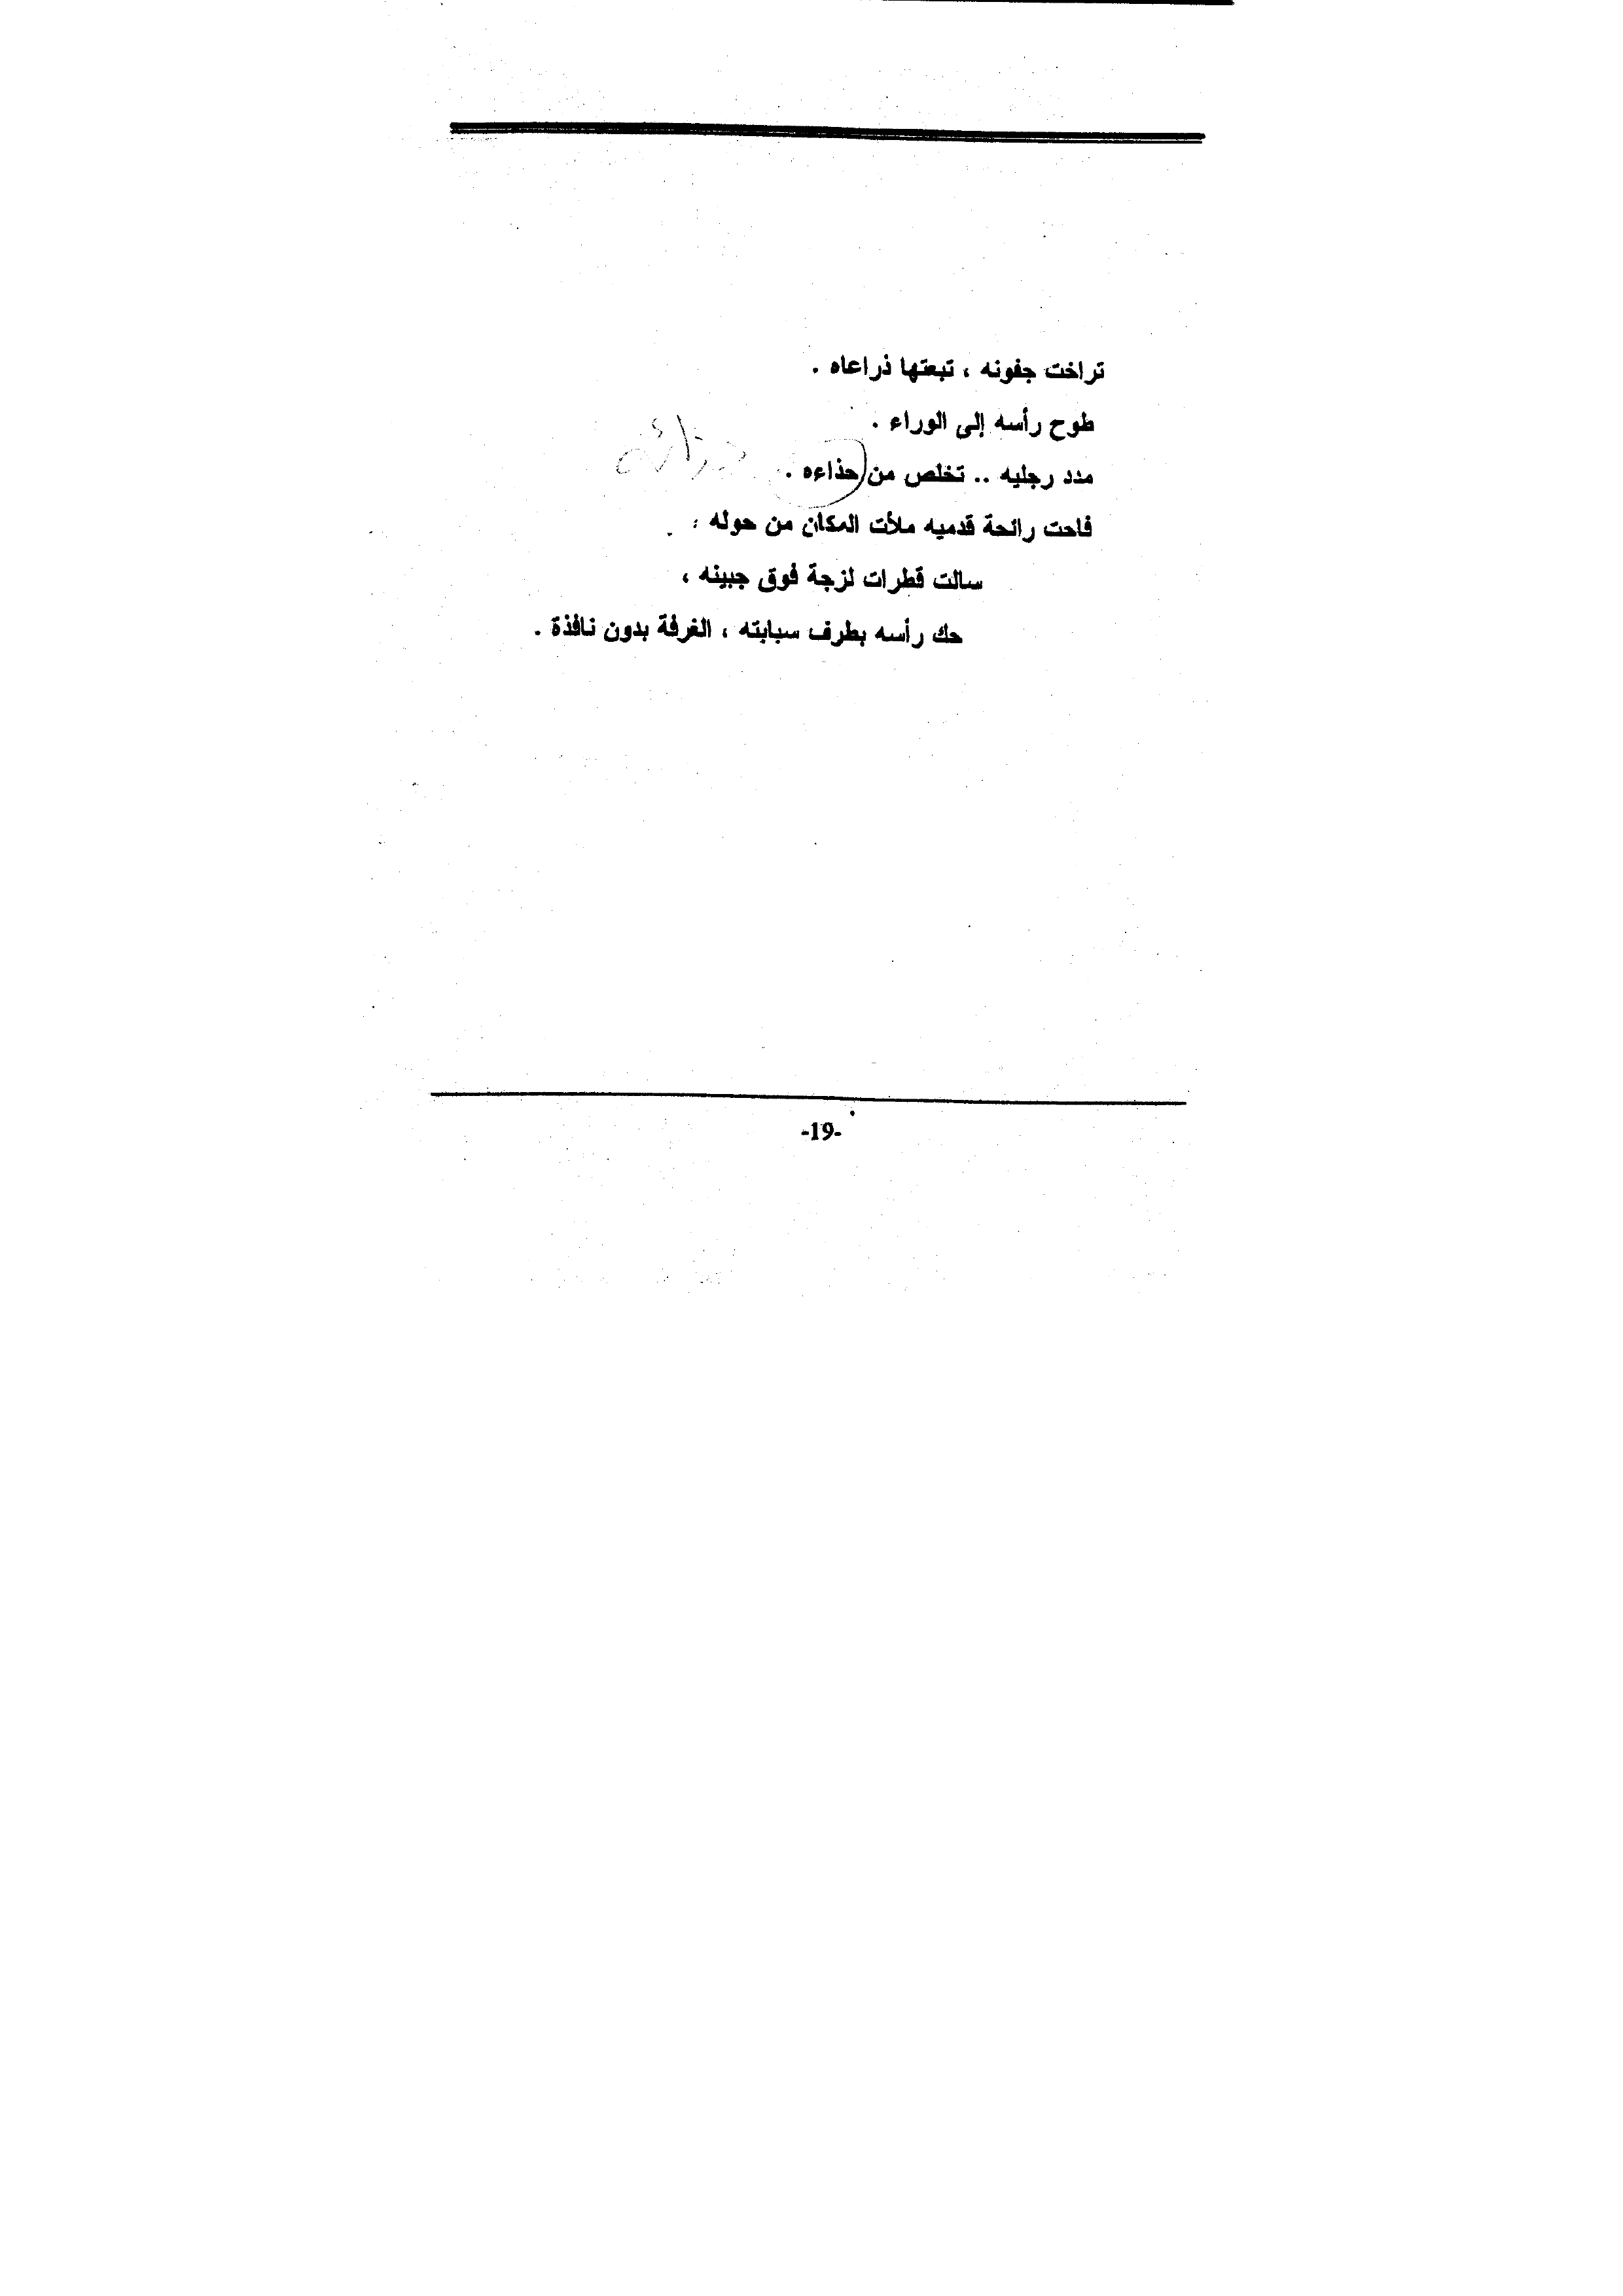 تراخت جفونه ، تبعتها ذراعاه .
طوح رأسه إلى الوراء .
مدد رجليه .. تخلص من حذاءه .
حذائه
فاحت رائحة قدميه ملأت المكان من حوله :
سالت قطرات لزجة فوق جبينه ،
حك رأسه بطرف سبابته ، الغرفة بدون نافذة .
-19-